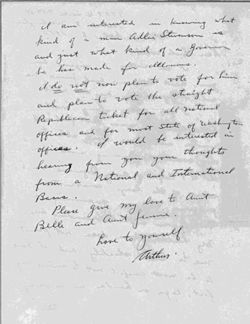 I am interested in knowing what
kind of a man Adlai Stevenson is
and just what kind of a Governor
he has made for Illinois.
I do not now plan to vote for him
and plan to vote the straight
Republican ticket for all national
offices and for most State of Washington
offices. I would be interested in
hearing from you your thoughts
from a National and International
Basis.
Please give my love to Aunt
Belle and Aunt Jennie.
Love to yourself
Arthur